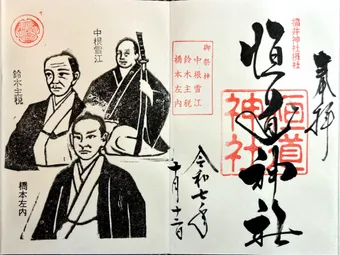 奉拝
福井神社摂社
恒道神社
恒道
神社
御祭神
中根雪江
鈴木主税
橋本左内
令和七年
十月十二日
中根雪江
鈴木主税
橋本左内